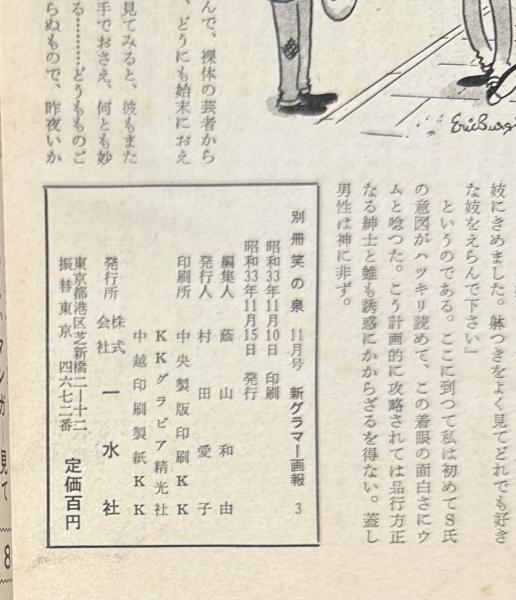 んで、裸体の芸者から
、どうにも始末におえ
見てみると、彼もまた
手でおさえ、何とも妙
る………どうもものご
らぬもので、昨夜いか
EricBurgi
妓にきめました。躰つきをよく見てどれでも好き
な妓をえらんで下さい」
というのである。ここに到つて私は初めてS氏
の意図がハツキリ読めて、この着眼の面白さにウ
ムと唸つた。こう計画的に攻略されては品行方正
なる紳士と雖も誘惑にかからざるを得ない。蓋し
男性は神に非ず。
別冊笑の泉 11月号 新グラマー画報 3
昭和33年11月10日 印刷
昭和33年11月15日 発行
編集人 蔭山和由
発行人 村田愛子
印刷所 中央製版印刷KK
KKグラビア精光社
中越印刷製紙KK
発行所 株式会社 一水社
東京都港区芝新橋二ー十二
振替東京 四六七二番
定価百円
マンガ
見て
8